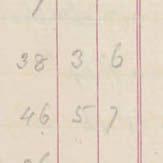 38 3 6
46 5 7